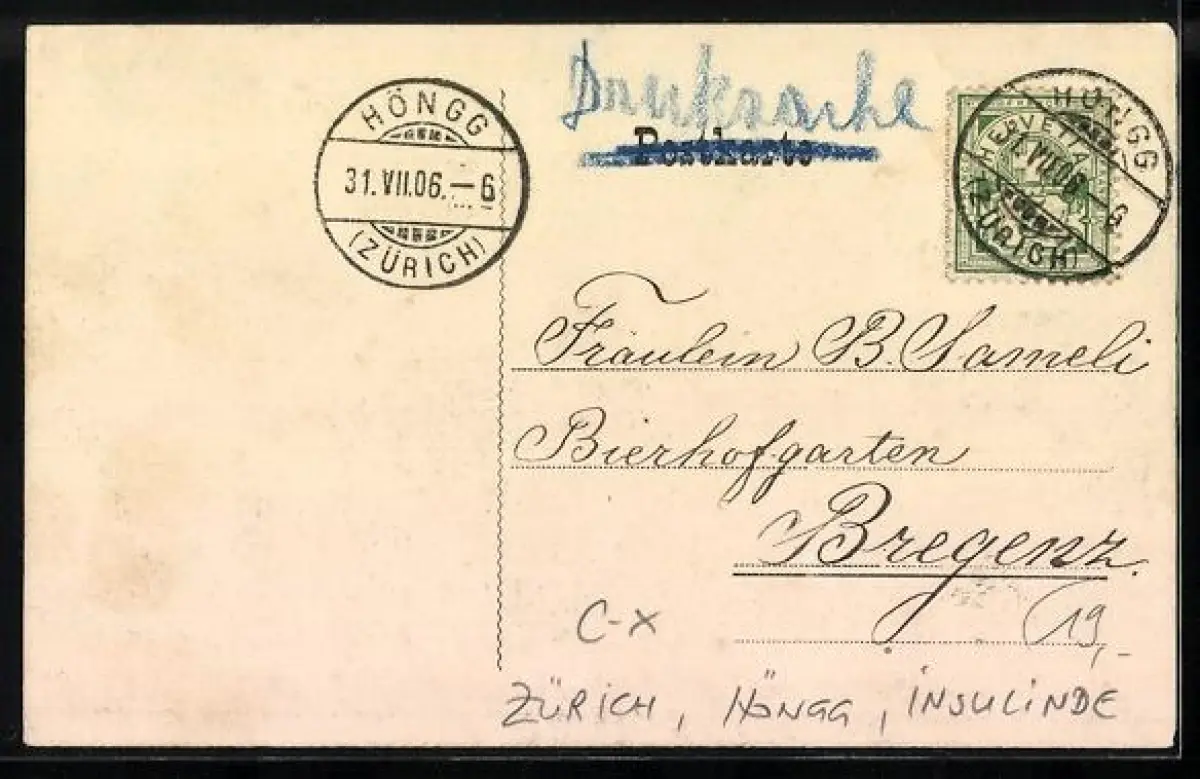 Drucksache
Postkarte
HÖNGG
31.VII.06.–6
(ZÜRICH)
HÖNGG
VII.06
6
(ZÜRICH)
HELVETIA
Fräulein B. Sameli
Bierhofgarten
Bregenz.
C-X
19,-
ZÜRICH, HÖNGG, INSULINDE